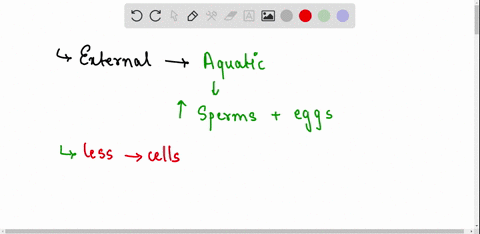 ↳ External → Aquatic
↓
↑ Sperms + eggs
↳ less → cells